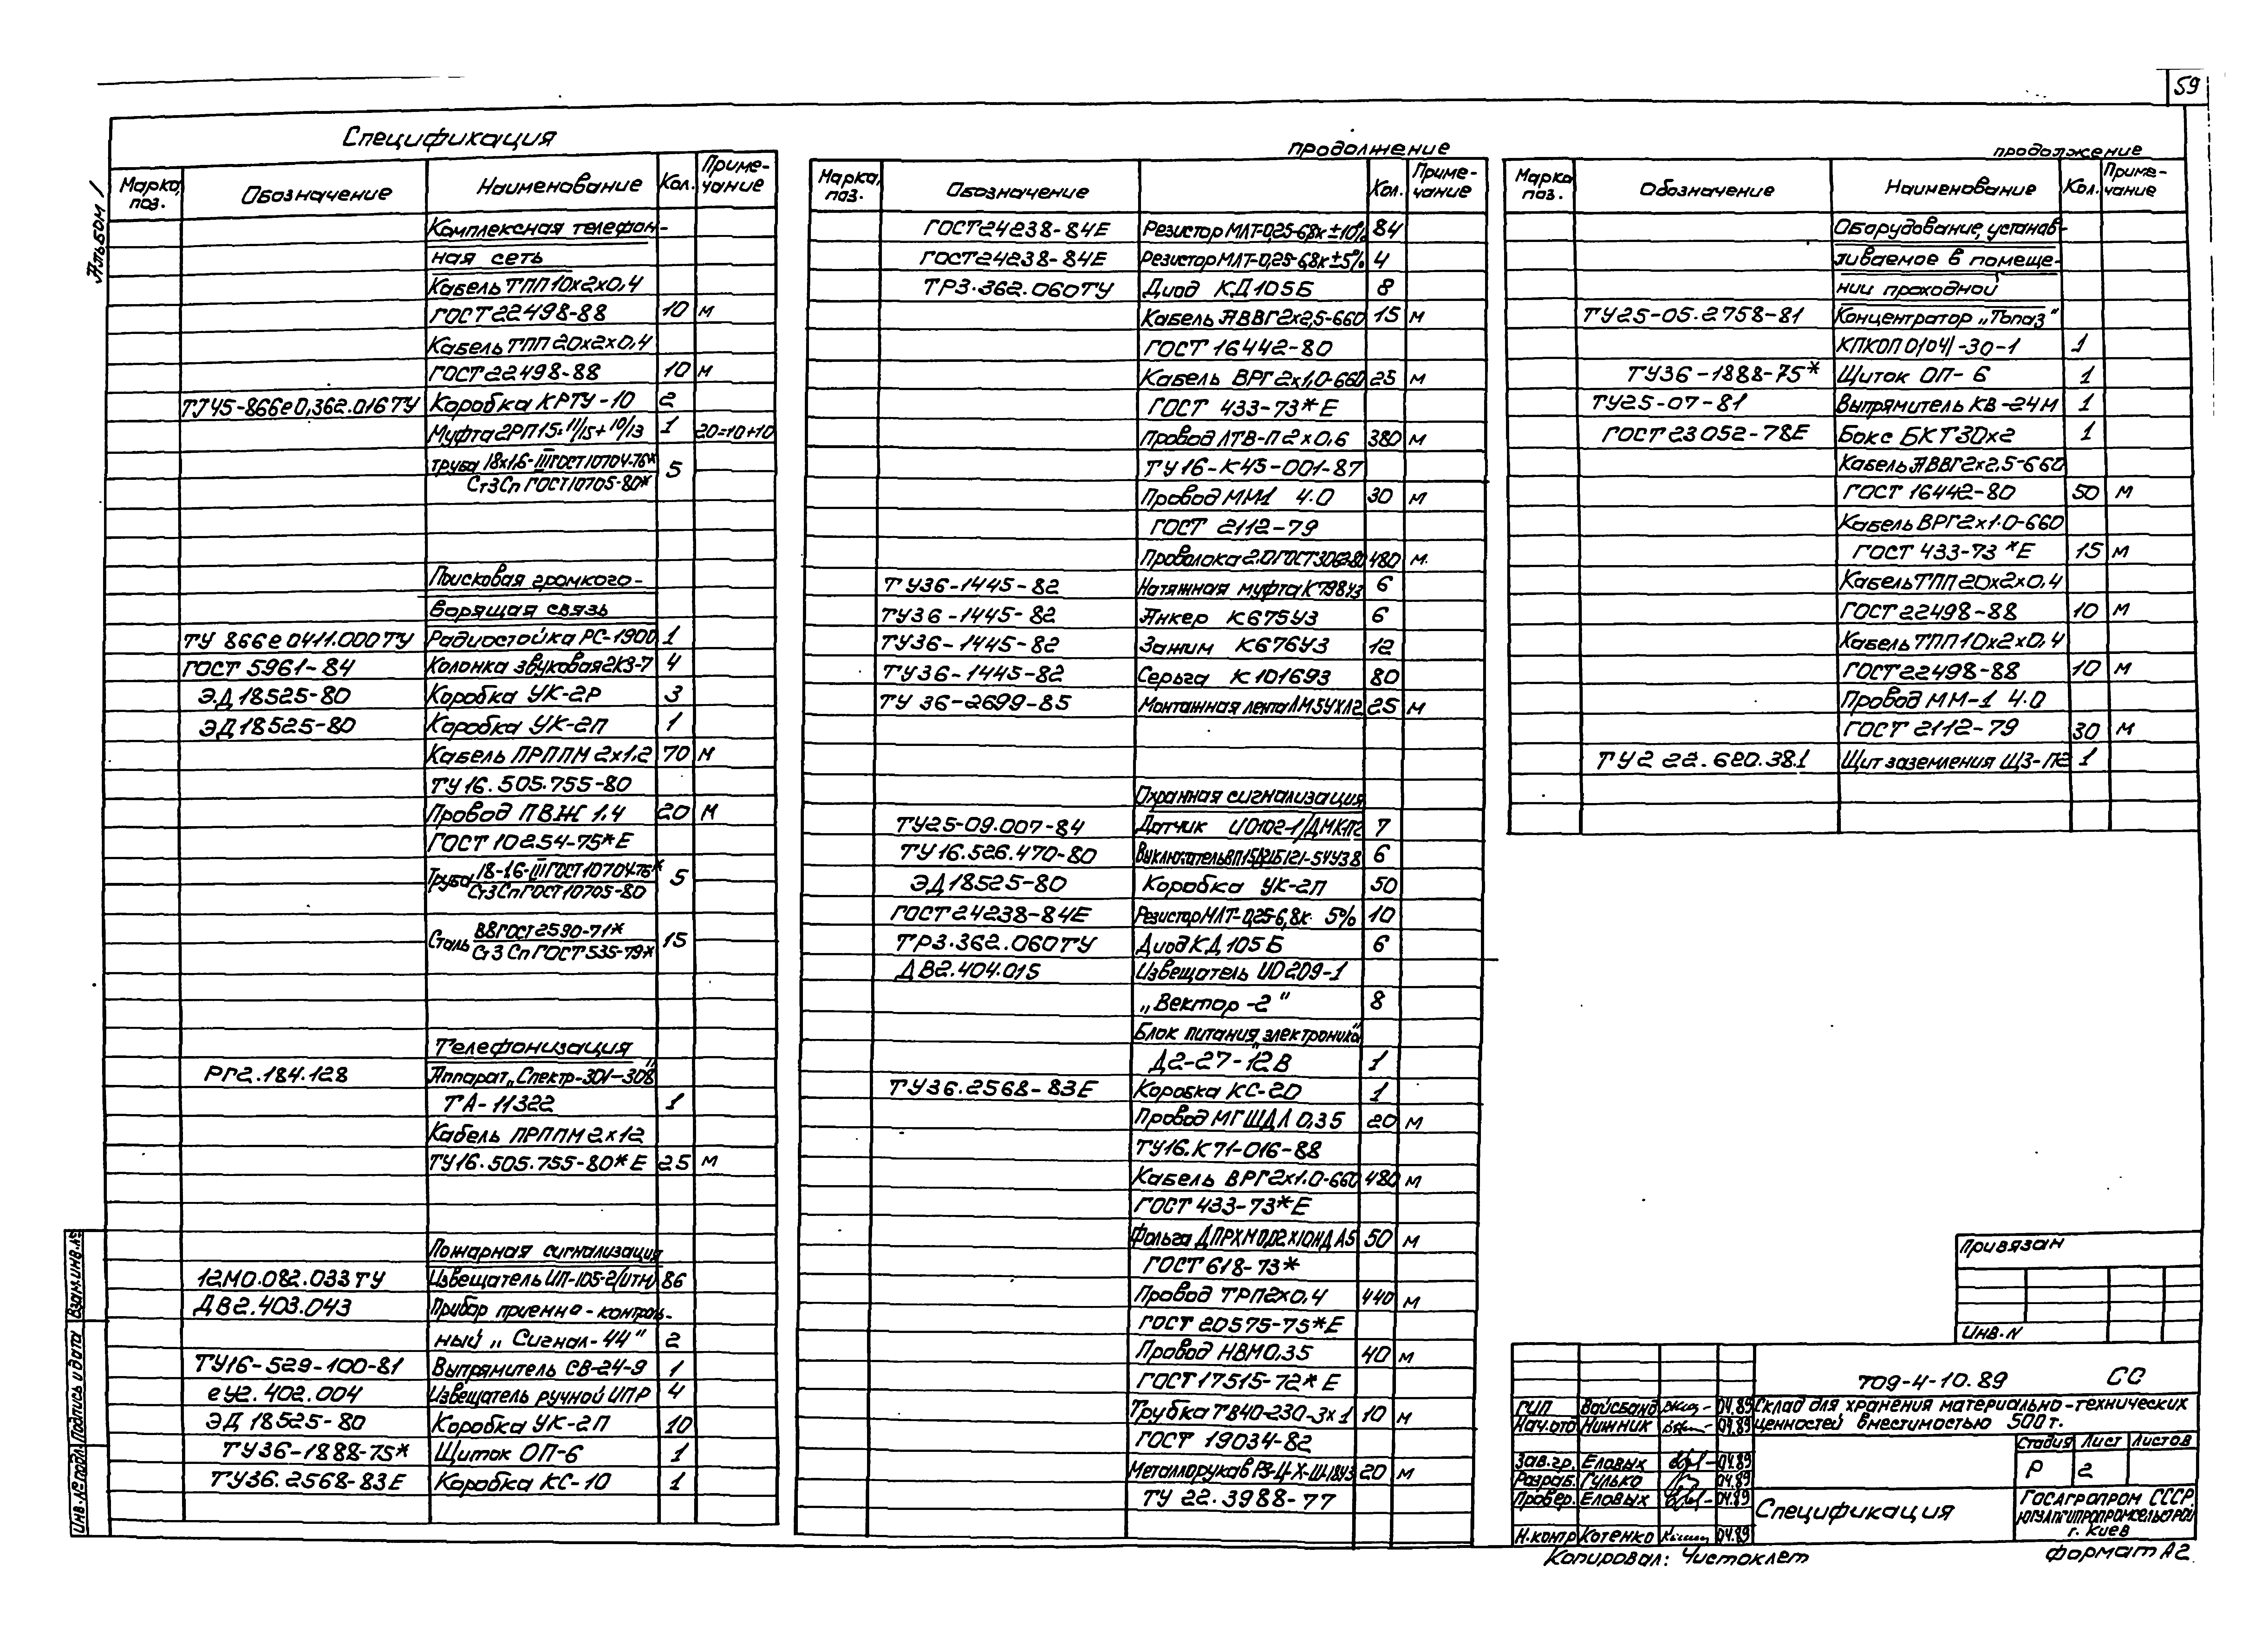 59
Альбом 1
Спецификация
Марка, поз. Обозначение Наименование Кол. Примечание
Комплексная телефон-
ная сеть
Кабель ТПП 10х2х0,4
ГОСТ 22498-88 10 м
Кабель ТПП 20х2х0,4
ГОСТ 22498-88 10 м
ТУ45-866е0,362.016ТУ Коробка КРТУ-10 2
Муфта 2РП15=11/15+10/13 1 20=10+10
Труба 18х1,6-III ГОСТ 10704-76* 5
Ст3Сп ГОСТ 10705-80*
Поисковая громкого-
ворящая связь
ТУ 866е0411.000ТУ Радиостойка РС-1900 1
ГОСТ 5961-84 Колонка звуковая 2КЗ-7 4
ЭД 18525-80 Коробка УК-2Р 3
ЭД 18525-80 Коробка УК-2П 1
Кабель ПРППМ 2х1,2 70 м
ТУ 16.505.755-80
Провод ПВЖ 1,4 20 м
ГОСТ 10254-75*Е
Труба 18-1,6-III ГОСТ 10704-76* 5
Ст3Сп ГОСТ 10705-80
Сталь В8 ГОСТ 2590-71* 15
Ст3 Сп ГОСТ 535-79*
Телефонизация
РГ2.184.128 Аппарат „Спектр-301-308"
ТА-11322 1
Кабель ПРППМ 2х12
ТУ16.505.755-80*Е 25 м
Пожарная сигнализация
12МО.082.033ТУ Извещатель ИП-105-2/1(ИТМ) 86
ДВ2.403.043 Прибор приемно-контроль-
ный „Сигнал-44" 2
ТУ16-529-100-81 Выпрямитель СВ-24-9 1
еУ2.402.004 Извещатель ручной ИПР 4
ЭД 18525-80 Коробка УК-2П 10
ТУ36-1888-75* Щиток ОП-6 1
ТУ36.2568-83Е Коробка КС-10 1
продолжение
Марка, поз. Обозначение Кол. Примечание
ГОСТ 24238-84Е Резистор МЛТ-0,25-6,8к±10% 84
ГОСТ 24238-84Е Резистор МЛТ-0,25-6,8к±5% 4
ТР3.362.060ТУ Диод КД105Б 8
Кабель АВВГ2х2,5-660 15 м
ГОСТ 16442-80
Кабель ВРГ 2х1,0-660 25 м
ГОСТ 433-73*Е
Провод ЛТВ-П 2х0,6 380 м
ТУ16-К45-001-87
Провод ММ1 4.0 30 м
ГОСТ 2112-79
Проволока 2.0 ГОСТ 3062-80 480 м.
ТУ36-1445-82 Натяжная муфта К798У3 6
ТУ36-1445-82 Анкер К675У3 6
ТУ36-1445-82 Зажим К676У3 12
ТУ36-1445-82 Серьга К1016У3 80
ТУ 36-2699-85 Монтажная лента ЛМ5УХЛ2 25 м
Охранная сигнализация
ТУ25-09.007-84 Датчик ИО102-1/ДМК-П2 7
ТУ16.526.470-80 Выключатель 6
ЭД 18525-80 Коробка УК-2П 50
ГОСТ 24238-84Е Резистор МЛТ-0,25-6,8к 5% 10
ТР3.362.060ТУ Диод КД 105Б 6
ДВ2.404.015 Извещатель ИО209-1
„Вектор-2" 8
Блок питания „электроника"
Д2-27-12В 1
ТУ36.2568-83Е Коробка КС-20 1
Провод МГШДЛ 0,35 20 м
ТУ16.К71-016-88
Кабель ВРГ2х1.0-660 480 м
ГОСТ 433-73*Е
Фольга ДПРХМ0,02х10НД А5 50 м
ГОСТ 618-73*
Провод ТРП2х0,4 440 м
ГОСТ 20575-75*Е
Провод НВМ0,35 40 м
ГОСТ 17515-72*Е
Трубка ТВ40-230-3х1 10 м
ГОСТ 19034-82
Металлорукав РЗ-Ц-Х-Ш-18У3 20 м
ТУ 22.3988-77
продолжение
Марка поз. Обозначение Наименование Кол. Примечание
Оборудование, устанав-
ливаемое в помеще-
нии проходной
ТУ25-05.2758-81 Концентратор „Топаз"
КПКОП 0104/-30-1 1
ТУ36-1888-75* Щиток ОП-6 1
ТУ25-07-81 Выпрямитель КВ-24М 1
ГОСТ 23052-78Е Бокс БКТ30х2 1
Кабель АВВГ2х2,5-660
ГОСТ 16442-80 50 м
Кабель ВРГ2х1.0-660
ГОСТ 433-73*Е 15 м
Кабель ТПП 20х2х0,4
ГОСТ 22498-88 10 м
Кабель ТПП 10х2х0,4
ГОСТ 22498-88 10 м
Провод ММ-1 4.0
ГОСТ 2112-79 30 м
ТУ2 22.620.381 Щит заземления ЩЗ-П2 1
Привязан
Инв.N
709-4-10.89 СС
ГИП Вайсбанд 04.89 Склад для хранения материально-технических
Нач.отд Нижник 04.89 ценностей вместимостью 500т.
Стадия Лист Листов
Зав.гр. Еловых 04.89 Р 2
Разраб. Гулько 04.89
Провер. Еловых 04.89
Спецификация
ГОСАГРОПРОМ СССР
ЮГЗАПГИПРОПРОМСЕЛЬСТРОЙ
г. Киев
Н.контр Котенко 04.89
Копировал: Чистоклет
Формат А2
Инв.№ подл. Подпись и дата Взам.инв.№